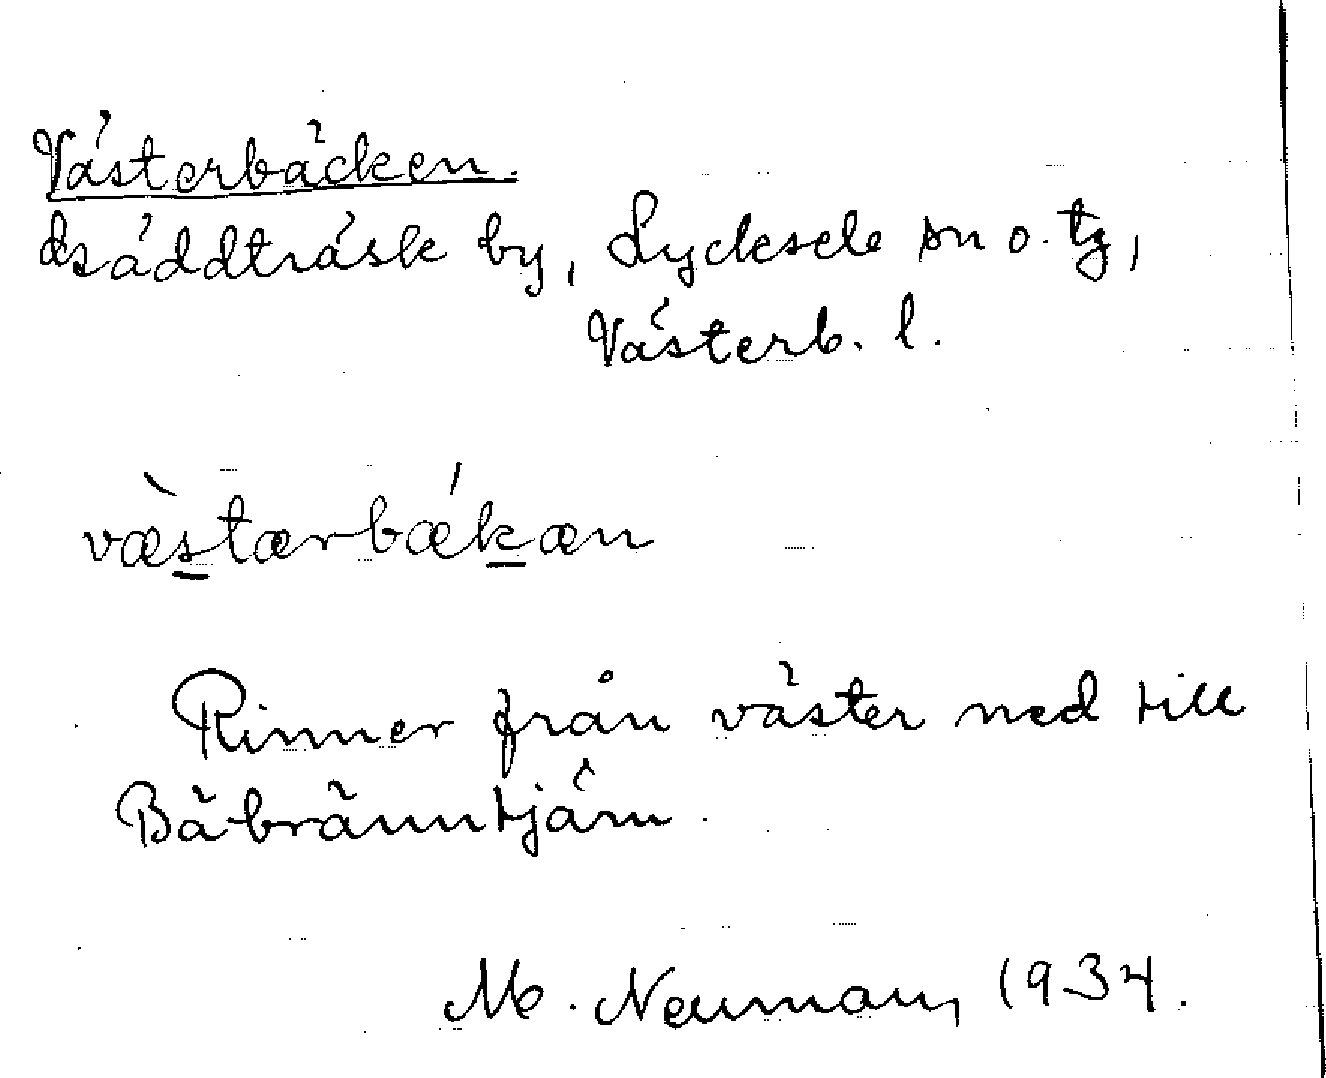 Västerbäcken.
Bsäddträsk by, Lycksele sn o. tg,
Västerb. l.
væstærbækæn
Rinner från väster ned till
Bäbränntjärn.
M. Neuman, 1934.